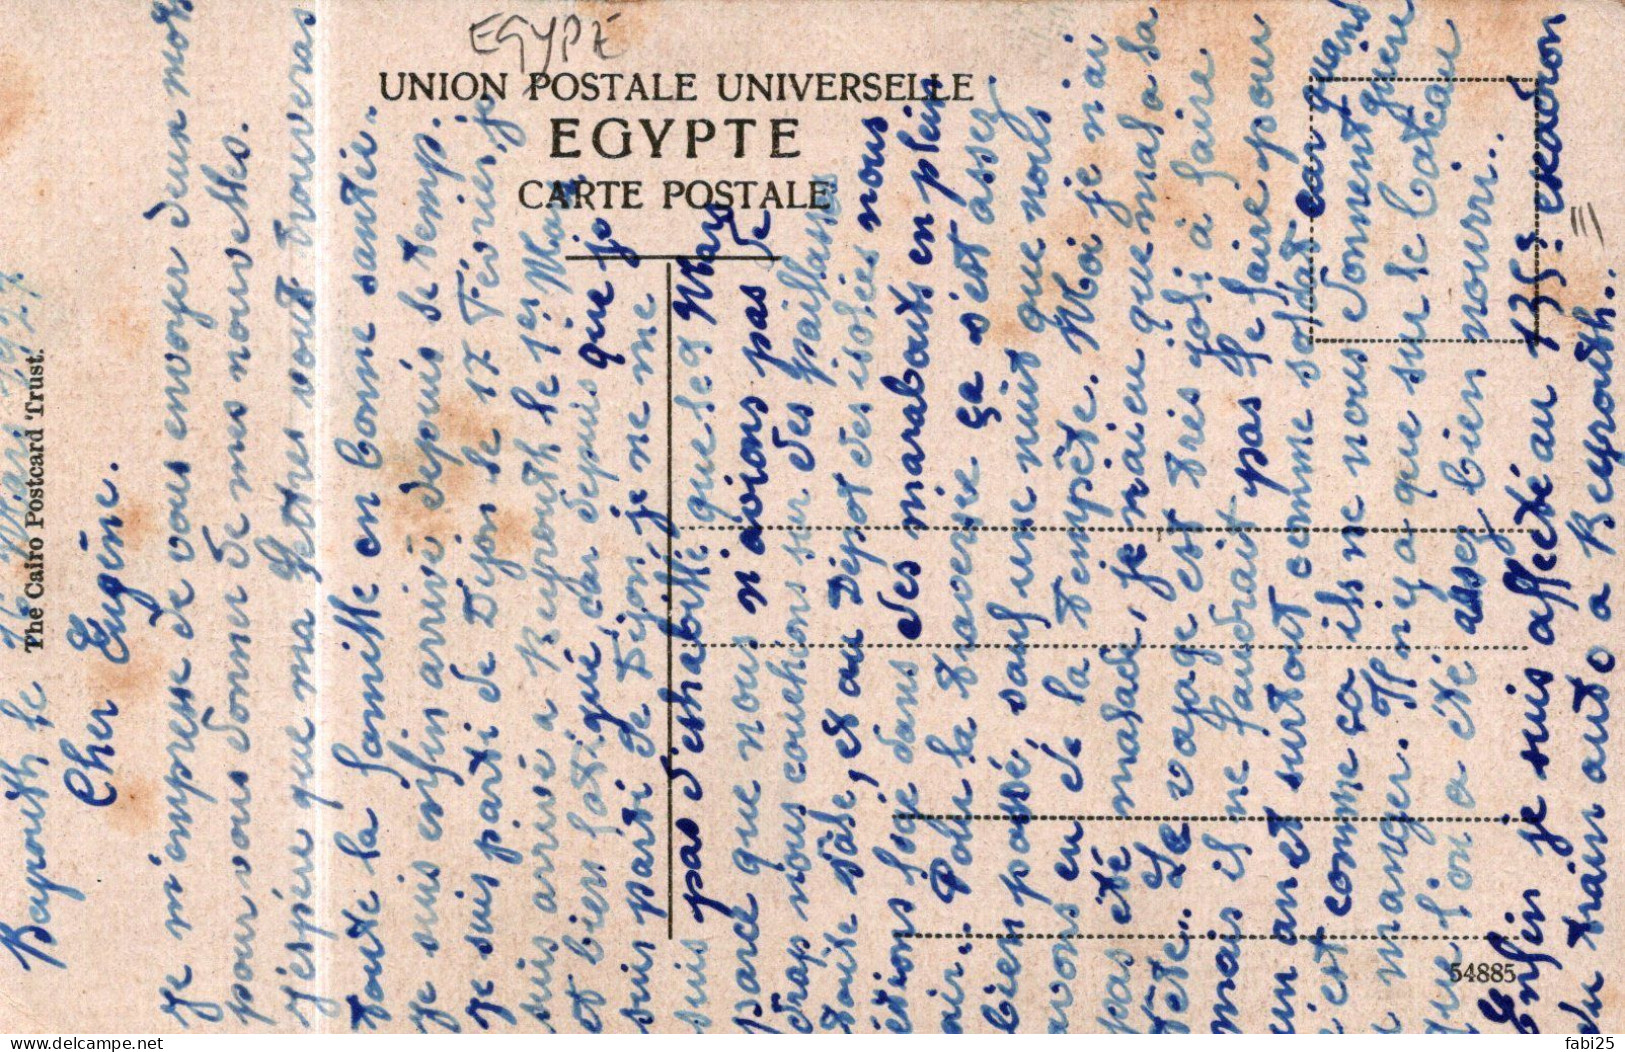 EGYPTE
UNION POSTALE UNIVERSELLE
EGYPTE
CARTE POSTALE
The Cairo Postcard Trust.
54885
Bayrouth le
Cher Eugène.
Je m'empresse de vous envoyer deux mots
pour vous donner de mes nouvelles.
J'espère que ma lettres vous trouveras
toute la famille en bonne santie.
Je suis enfin arrivé depuis le temp.
Je suis parti de Dijon le 17 Février, je
suis arrivé a Beyrouth le 1er Mars
et bien fatigué car depuis que je
suis parti de Dijon je ne me
suis pas déshabillé que le 9 Mars
parce que nous n'avions pas de
drap nous couchions sur des paillasses
toute sale, et au Dépot des isolées nous
étions logé dans des marabouts en plein
air. Pour la traversée ça s'est assez
bien passé, sauf une nuit que nous
avons eu de la tempête. Moi je n'ai
pas été malade, je n'ai eu que mal a la
tête. Le voyage est très joli à faire
mais il ne faudrait pas le faire pour
un an et surtout comme soldat car quand
c'est comme ça ils ne nous donnent guère
a manger. Il n'y a que sur le bateau
que l'on a été assez bien nourri..
Enfin je suis affecté au 135e escadron
du train auto a Beyrouth..
fabi25